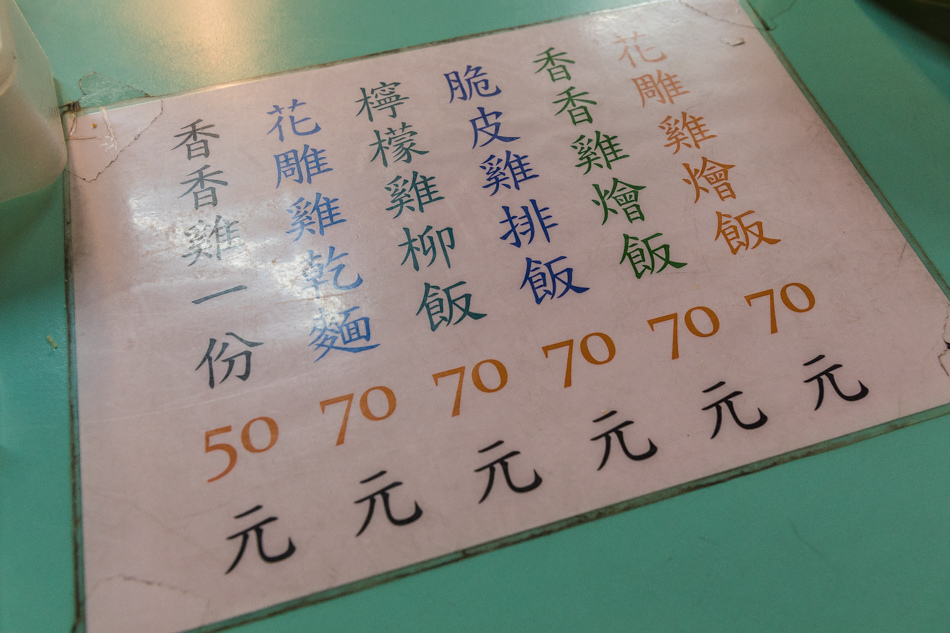 花雕雞燴飯70元
香香雞燴飯70元
脆皮雞排飯70元
檸檬雞柳飯70元
花雕雞乾麵70元
香香雞一份50元